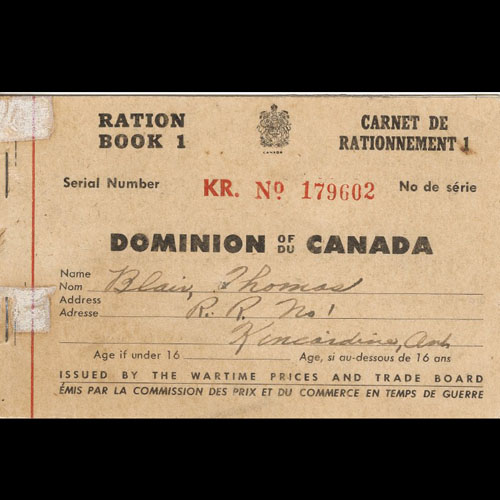 RATION BOOK 1
CANADA
CARNET DE RATIONNEMENT 1
Serial Number KR. Nº 179602 No de série
DOMINION OF DU CANADA
Name Nom Blair, Thomas
Address Adresse R. R. No 1
Kincardine, Ont
Age if under 16 Age, si au-dessous de 16 ans
ISSUED BY THE WARTIME PRICES AND TRADE BOARD
ÉMIS PAR LA COMMISSION DES PRIX ET DU COMMERCE EN TEMPS DE GUERRE